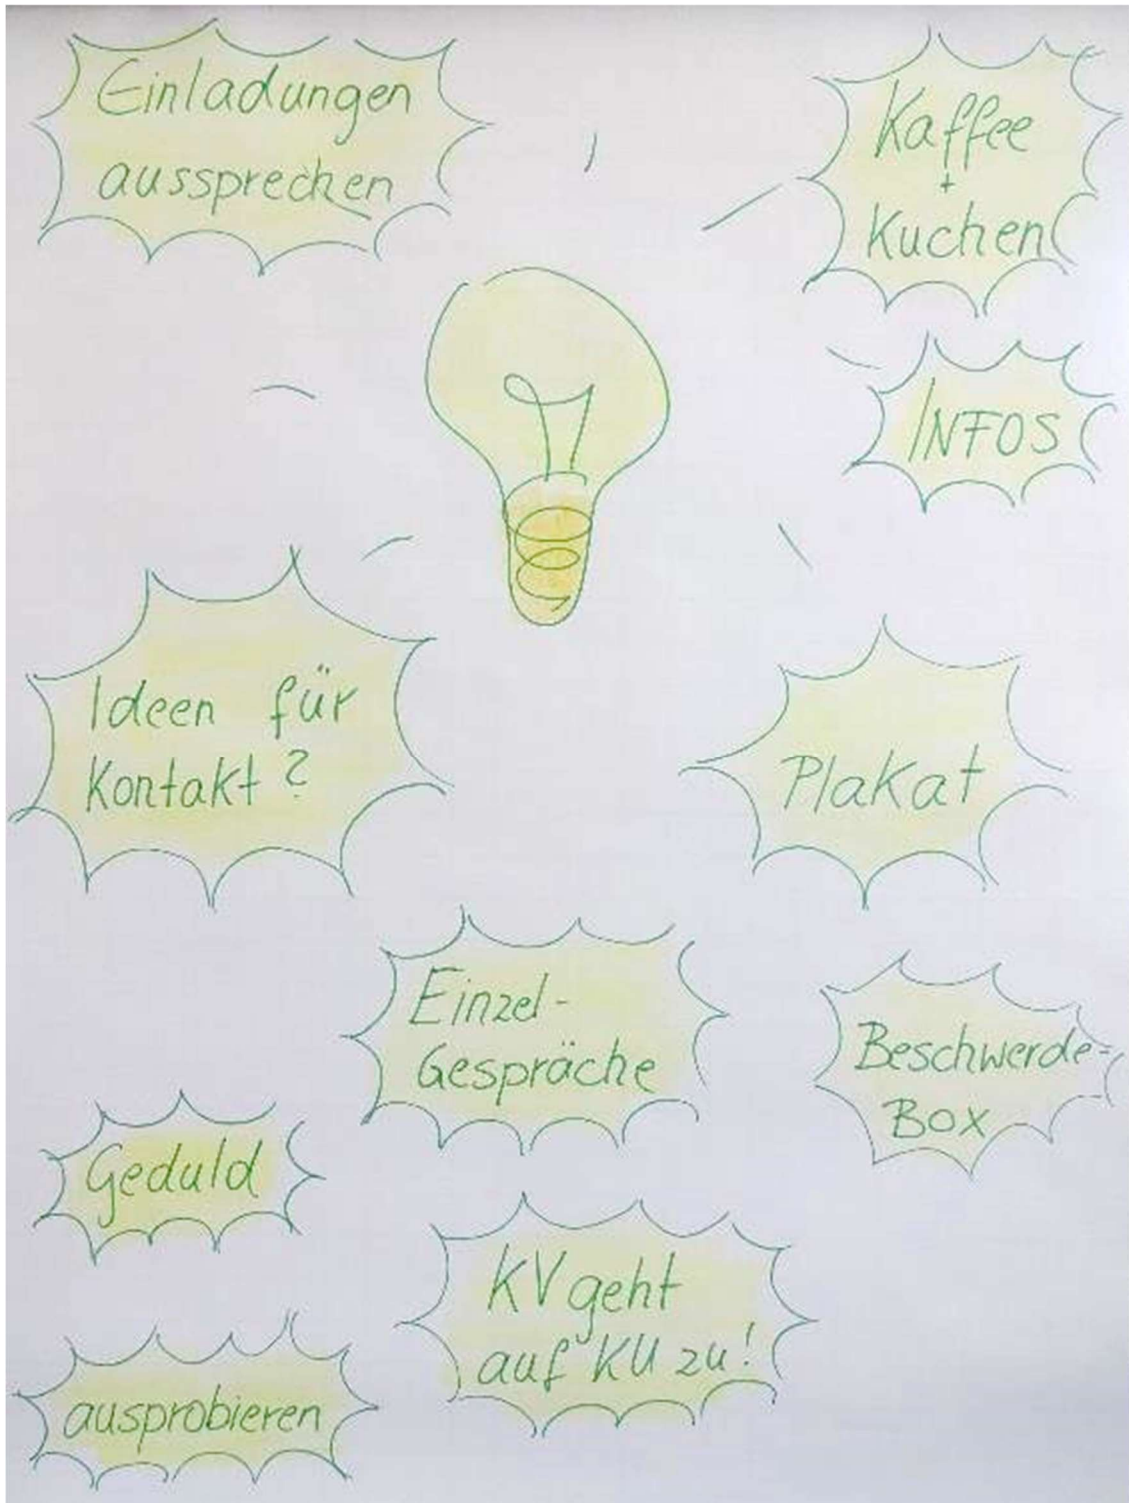 Einladungen
aussprechen
Kaffee
+
Kuchen
INFOS
Ideen für
Kontakt?
Plakat
Einzel-
Gespräche
Beschwerde-
Box
Geduld
KV geht
auf KU zu!
ausprobieren